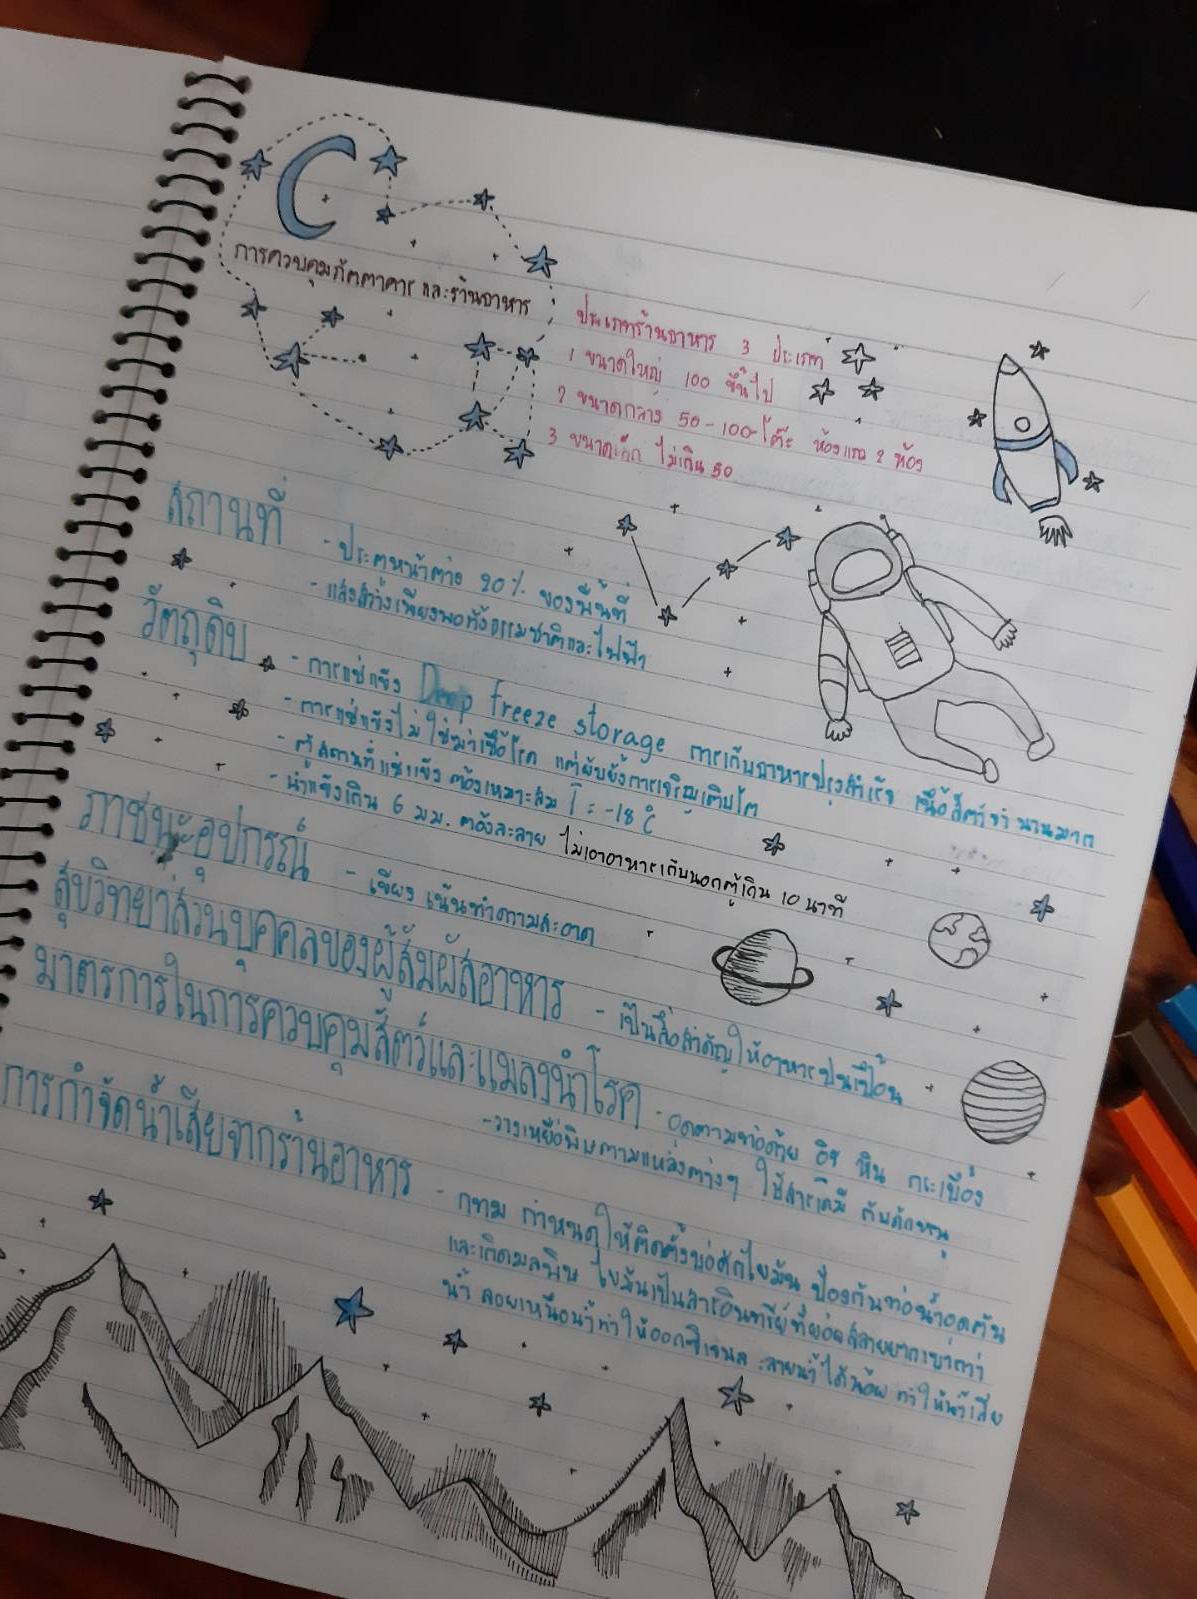 การควบคุมภัตตาคารและร้านอาหาร
ประเภทร้านอาหาร 3 ประเภท
1 ขนาดใหญ่ 100 ขึ้นไป
2 ขนาดกลาง 50-100 โต๊ะ ห้องแถว 2 ห้อง
3 ขนาดเล็ก ไม่เกิน 50
สถานที่
- ประตูหน้าต่าง 20% ของพื้นที่
- แสงสว่างเพียงพอทั้งธรรมชาติและไฟฟ้า
วัตถุดิบ
- การแช่แข็ง Deep freeze storage การเก็บอาหารปรุงสำเร็จ เนื้อสัตว์ นานมาก
- การแช่แข็งไม่ใช่ฆ่าเชื้อโรค แต่ยับยั้งการเจริญเติบโต
- ตู้ สถานที่แช่แข็ง ต้องเหมาะสม T = -18 C
- น้ำแข็งเกิน 6 มม. ต้องละลาย ไม่เอาอาหารเก็บนอกตู้เกิน 10 นาที
ภาชนะอุปกรณ์
- เขียง เน้นทำความสะอาด
สุขวิทยาส่วนบุคคลของผู้สัมผัสอาหาร - เป็นสื่อสำคัญให้อาหารปนเปื้อน
มาตรการในการควบคุมสัตว์และแมลงนำโรค - อุดตามท่อด้วย อิฐ หิน กระเบื้อง
- วางเหยื่อพิษตามแหล่งต่างๆ ใช้สารเคมี กับดักหนู
การกำจัดน้ำเสียจากร้านอาหาร - กทม กำหนดให้ติดตั้งบ่อดักไขมัน ป้องกันท่อน้ำอุดตัน
และเกิดมลพิษ ไขมันเป็นสารอินทรีย์ที่ย่อยสลายยากเบากว่า
น้ำ ลอยเหนือน้ำทำให้ออกซิเจนละลายน้ำได้น้อย ทำให้น้ำเสีย